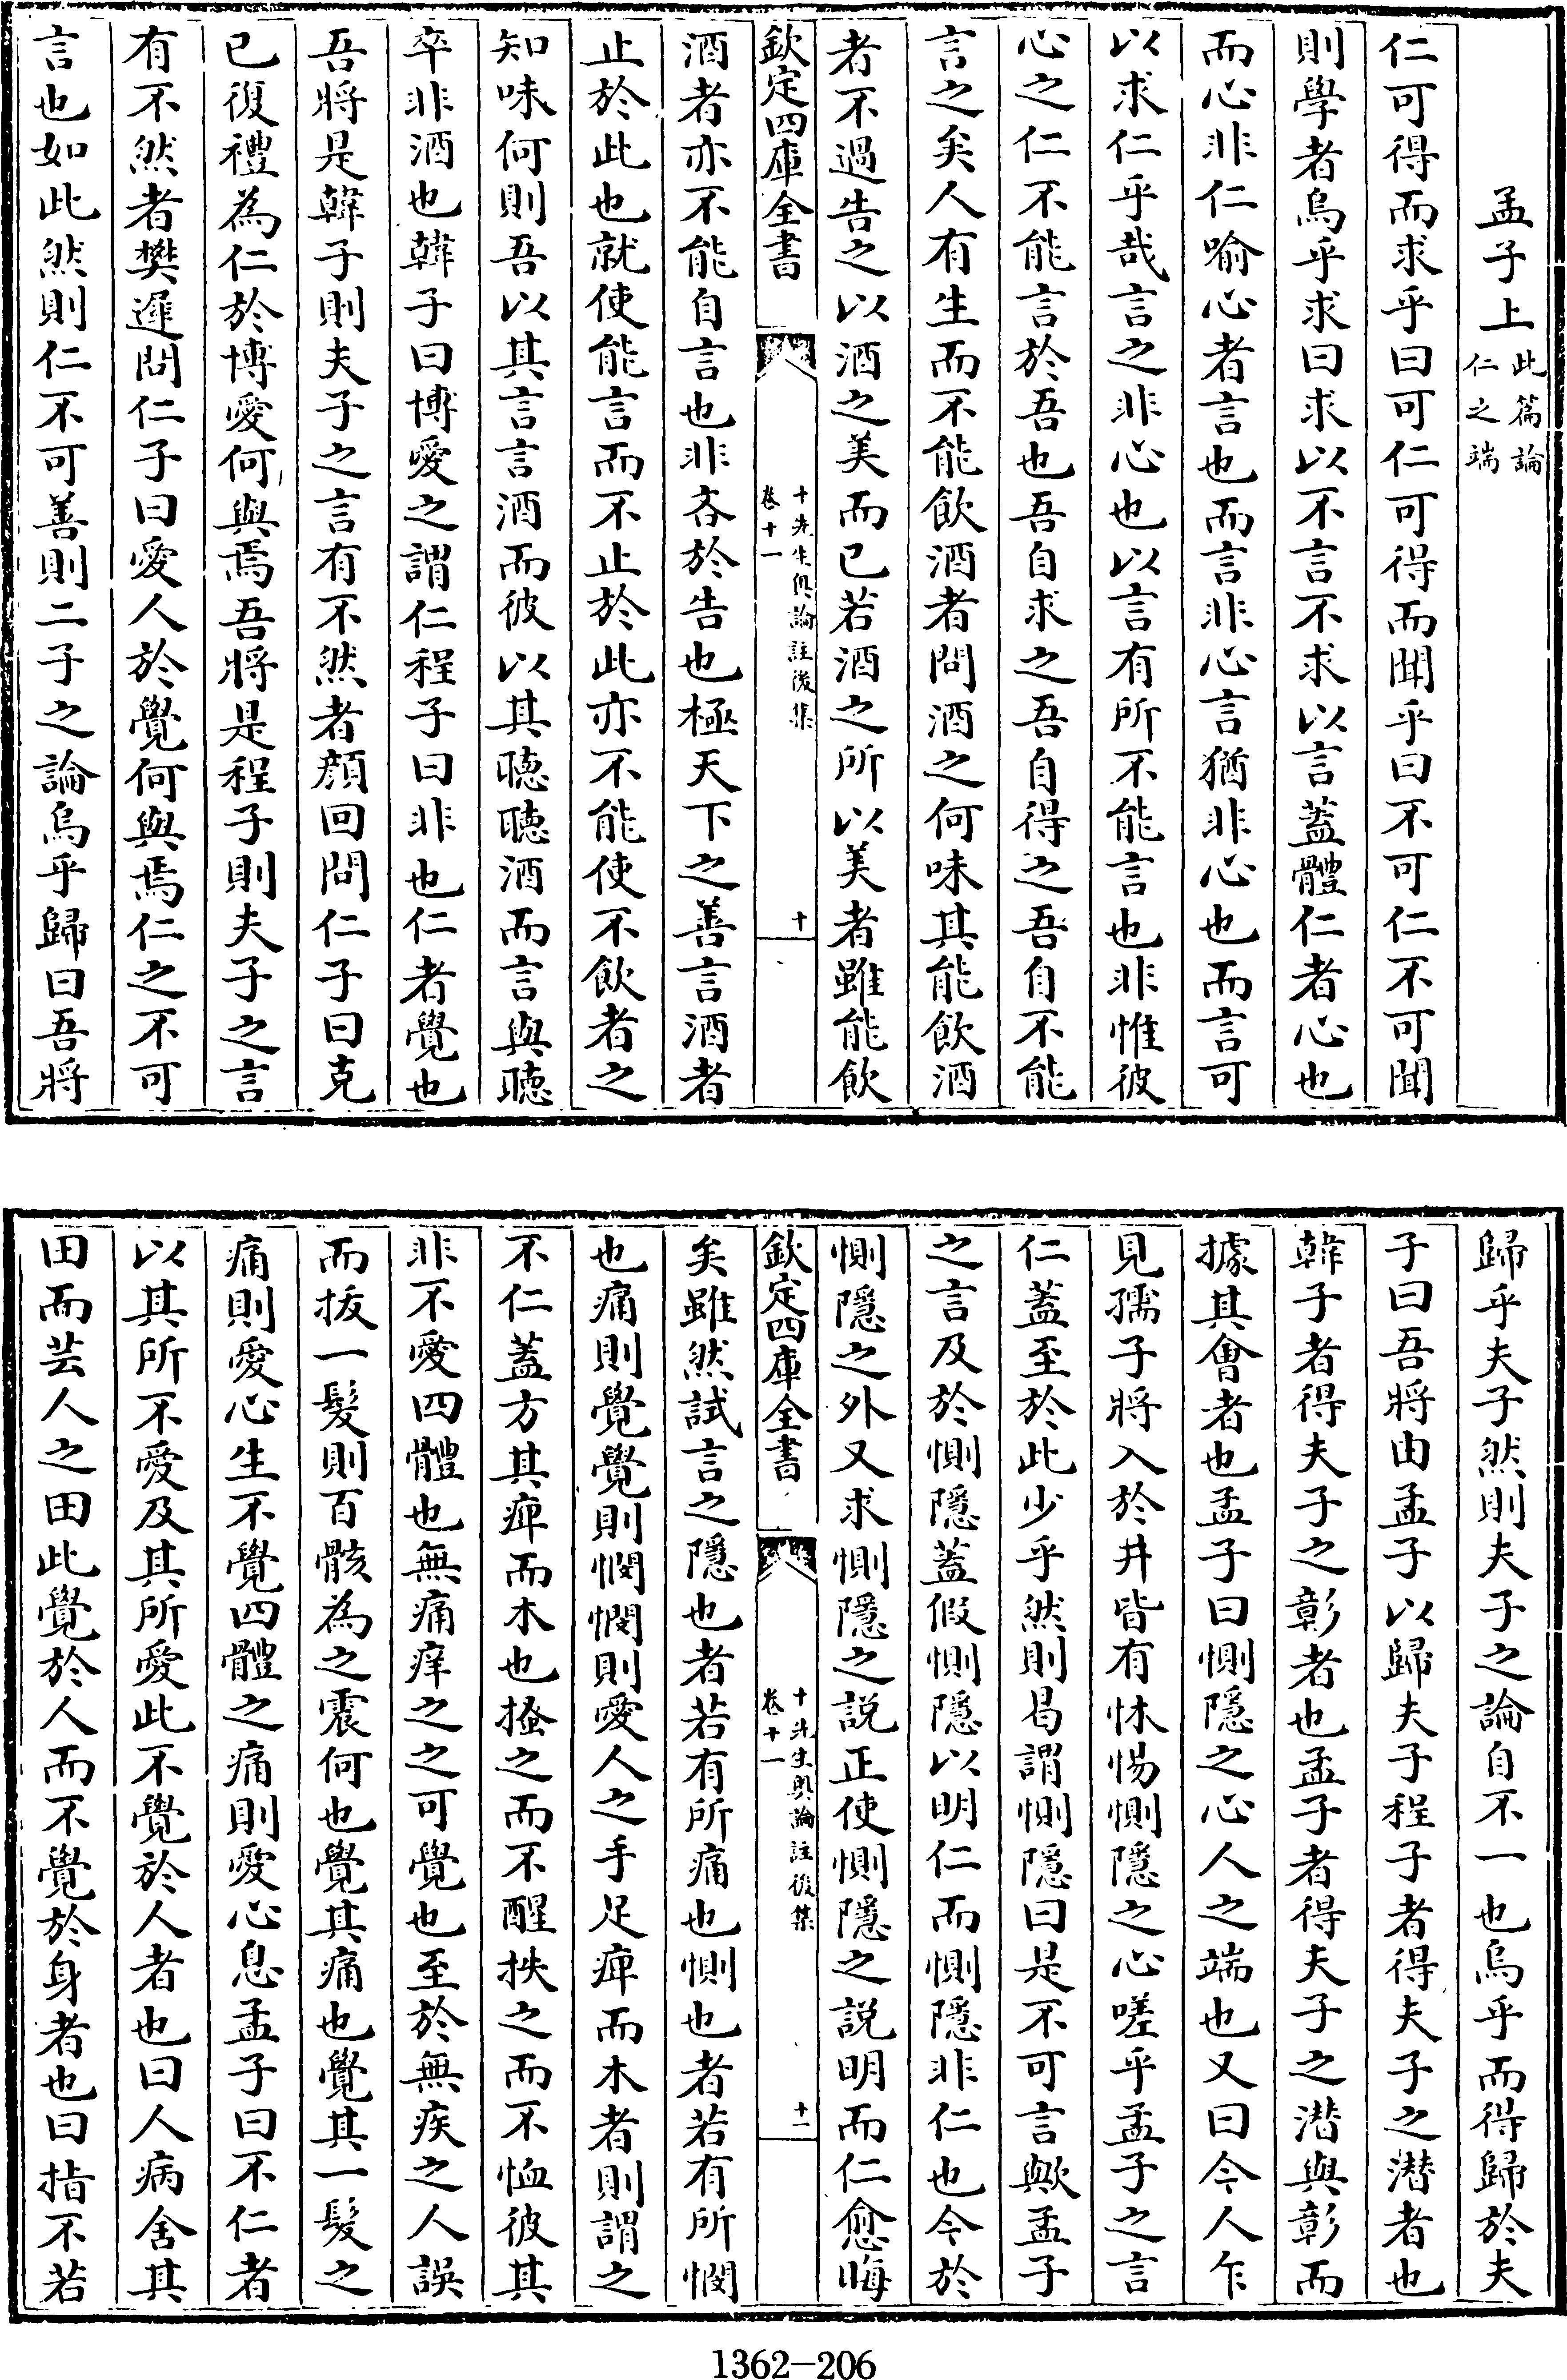 孟子上此篇論仁之端
仁可得而求乎曰可仁可得而聞乎曰不可仁不可聞
則學者烏乎求曰求以不言不求以言蓋體仁者心也
而心非仁喻心者言也而言非心言猶非心也而言可
以求仁乎哉言之非心也以言有所不能言也非惟彼
心之仁不能言於吾也吾自求之吾自得之吾自不能
言之矣人有生而不能飲酒者問酒之何味其能飲酒
者不過告之以酒之美而已若酒之所以美者雖能飲
欽定四庫全書
十先生奧論註後集
卷十一
十
酒者亦不能自言也非吝於告也極天下之善言酒者
止於此也就使能言而不止於此亦不能使不飲者之
知味何則吾以其言言酒而彼以其聽聽酒而言與聽
卒非酒也韓子曰博愛之謂仁程子曰非也仁者覺也
吾將是韓子則夫子之言有不然者顏回問仁子曰克
已復禮為仁於博愛何與焉吾將是程子則夫子之言
有不然者樊遲問仁子曰愛人於覺何與焉仁之不可
言也如此然則仁不可善則二子之論烏乎歸曰吾將
歸乎夫子然則夫子之論自不一也烏乎而得歸於夫
子曰吾將由孟子以歸夫子程子者得夫子之潛者也
韓子者得夫子之彰者也孟子者得夫子之潛與彰而
據其會者也孟子曰惻隱之心人之端也又曰今人乍
見孺子將入於井皆有怵惕惻隱之心嗟乎孟子之言
仁蓋至於此少乎然則曷謂惻隱曰是不可言歟孟子
之言及於惻隱蓋假惻隱以明仁而惻隱非仁也今於
惻隱之外又求惻隱之説正使惻隱之説明而仁愈晦
欽定四庫全書
十先生奧論註後集
卷十一
十一
矣雖然試言之隱也者若有所痛也惻也者若有所憫
也痛則覺覺則憫憫則愛人之手足痺而木者則謂之
不仁蓋方其痺而木也搔之而不醒抶之而不恤彼其
非不愛四體也無痛痒之之可覺也至於無疾之人誤
而拔一髮則百骸為之震何也覺其痛也覺其一髮之
痛則愛心生不覺四體之痛則愛心息孟子曰不仁者
以其所不愛及其所愛此不覺於人者也曰人病舍其
田而芸人之田此覺於人而不覺於身者也曰指不若
1362-206